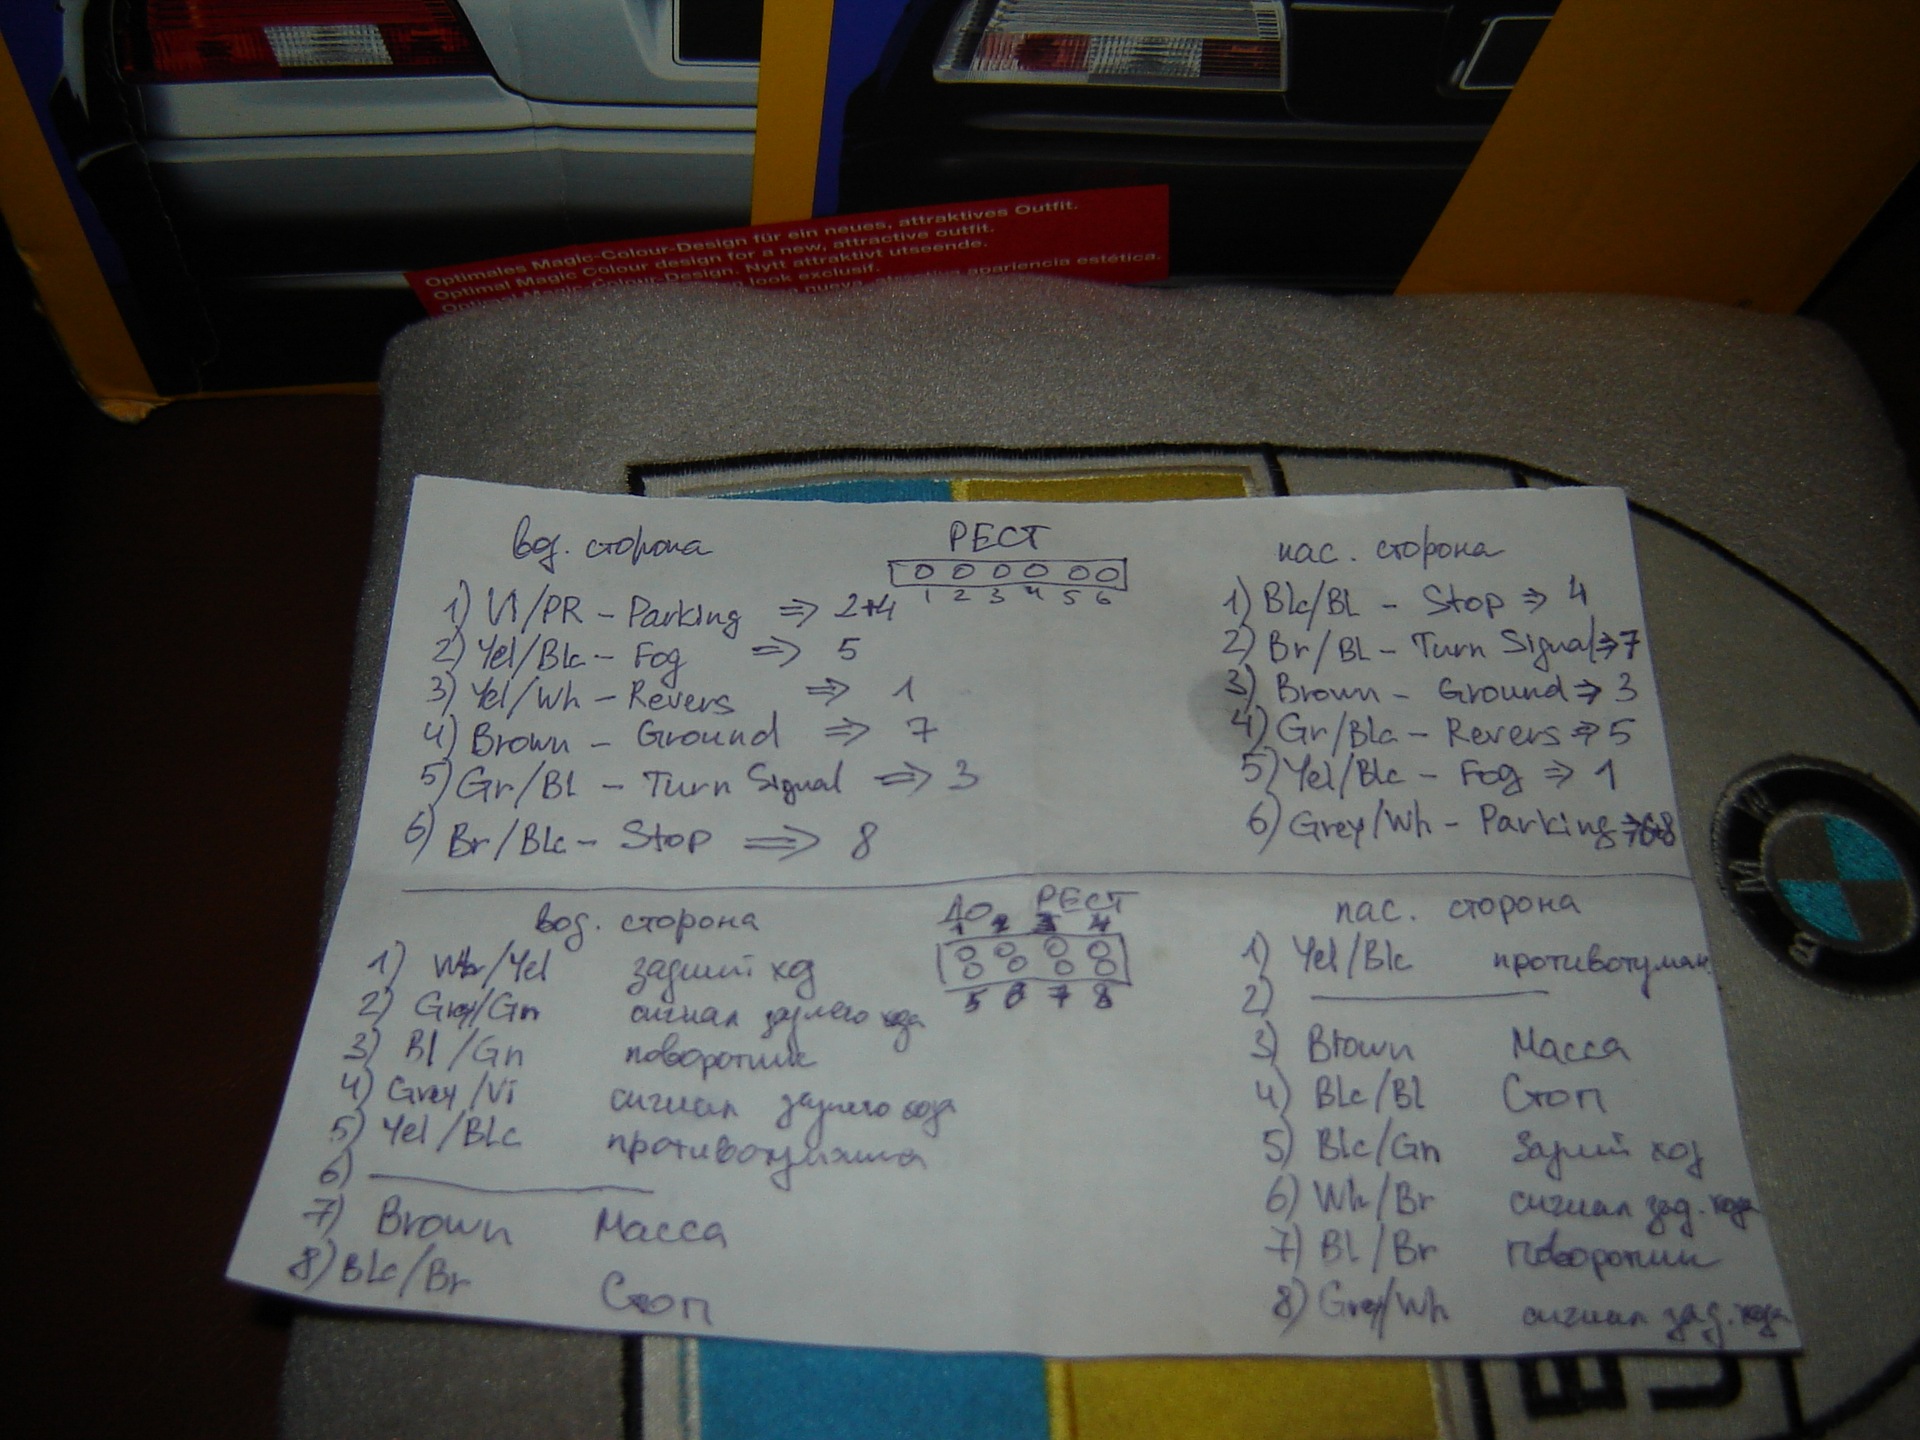 Optimales Magic-Colour-Design für ein neues, attraktives Outfit.
Optimal Magic Colour design for a new, attractive outfit.
Optimal Magic-Colour-Design. Nytt attraktivt utseende.
look exclusif.
nueva apariencia estética.
вод. сторона
РЕСТ
1 2 3 4 5 6
1) VI/PR - Parking => 2+4
2) Yel/Blc - Fog => 5
3) Yel/Wh - Revers => 1
4) Brown - Ground => 7
5) Gr/Bl - Turn Signal => 3
6) Br/Blc - Stop => 8
пас. сторона
1) Blc/BL - Stop => 4
2) Br/BL - Turn Signal => 7
3) Brown - Ground => 3
4) Gr/Blc - Revers => 5
5) Yel/Blc - Fog => 1
6) Grey/Wh - Parking => 6+8
вод. сторона
ДО РЕСТ
1 2 3 4
5 6 7 8
1) Wh/Yel задний ход
2) Grey/Gn сигнал заднего хода
3) Bl/Gn поворотник
4) Grey/Vi сигнал заднего хода
5) Yel/BLc противотуманка
6) —
7) Brown Масса
8) BLc/Br Стоп
пас. сторона
1) Yel/Blc противотуман.
2) —
3) Brown Масса
4) BLc/Bl Стоп
5) BLc/Gn Задний ход
6) Wh/Br сигнал зад. хода
7) Bl/Br Поворотник
8) Grey/Wh сигнал зад. хода
B M W